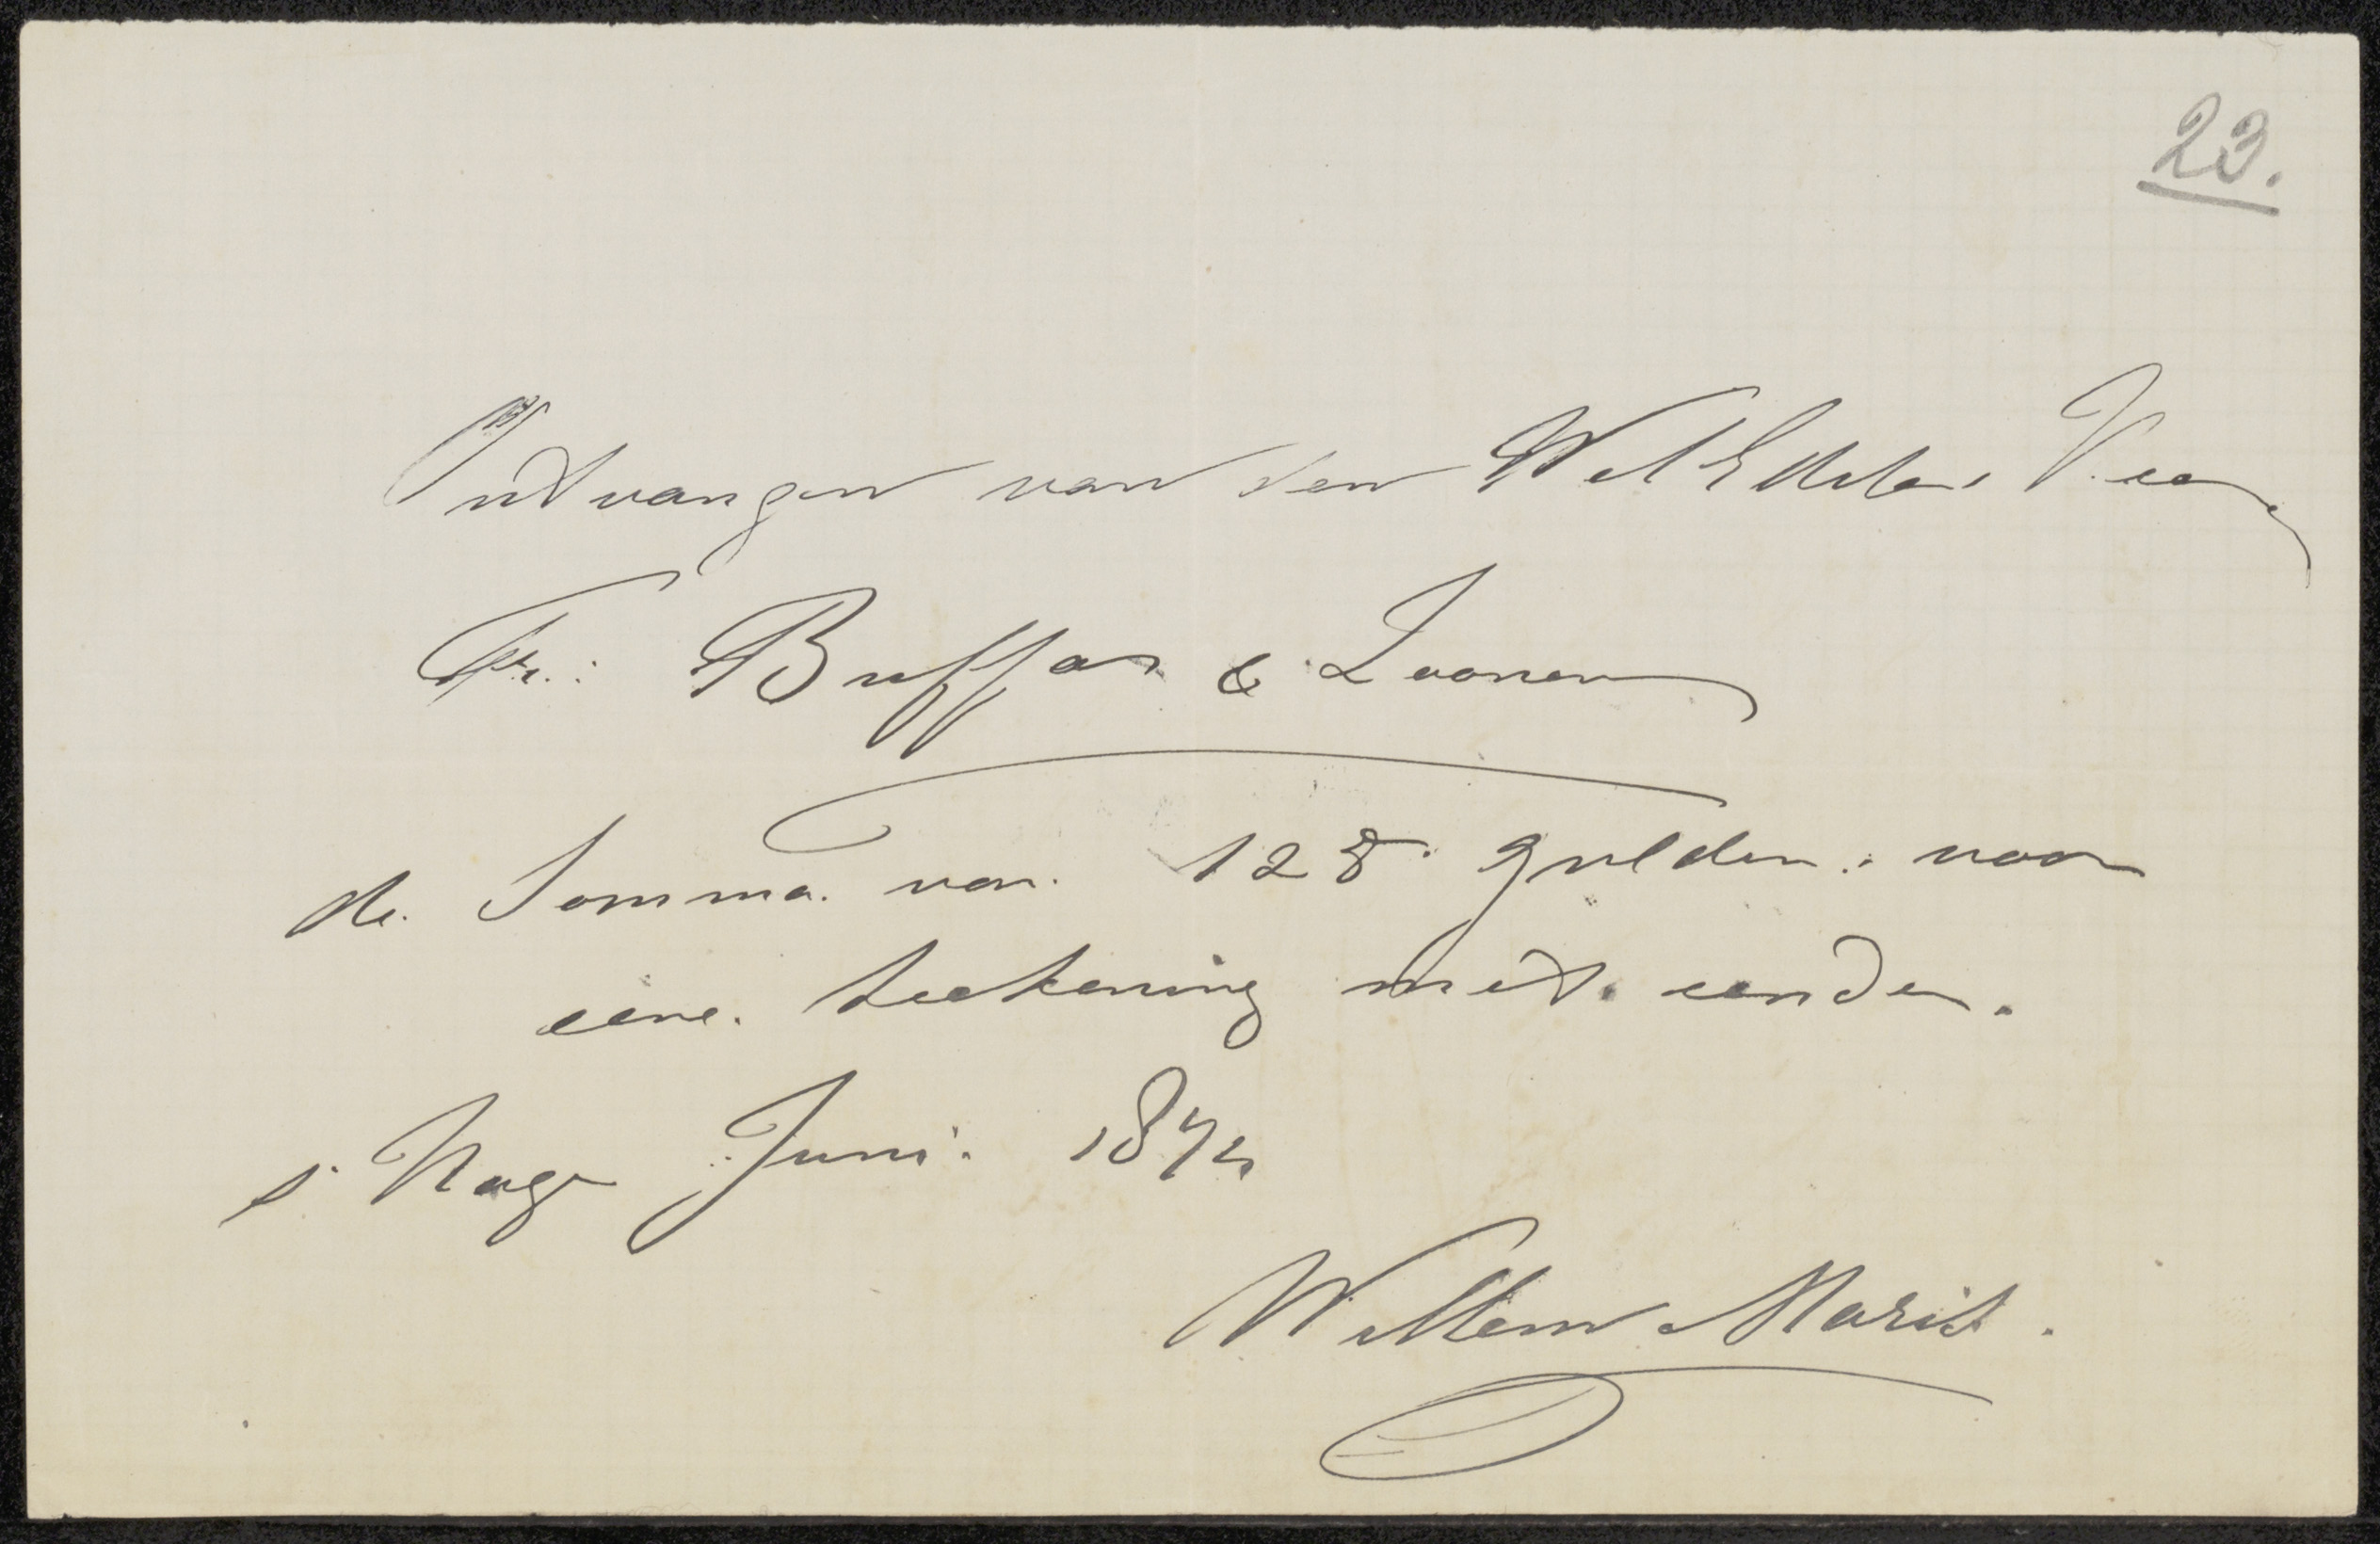 23.
Ontvangen van den WelEdelen Heer
Fr.: Buffa & Zoonen
de Somma van 125 gulden. voor
eene teekening met eenden.
s' Hage Juni. 1874
Willem Maris.